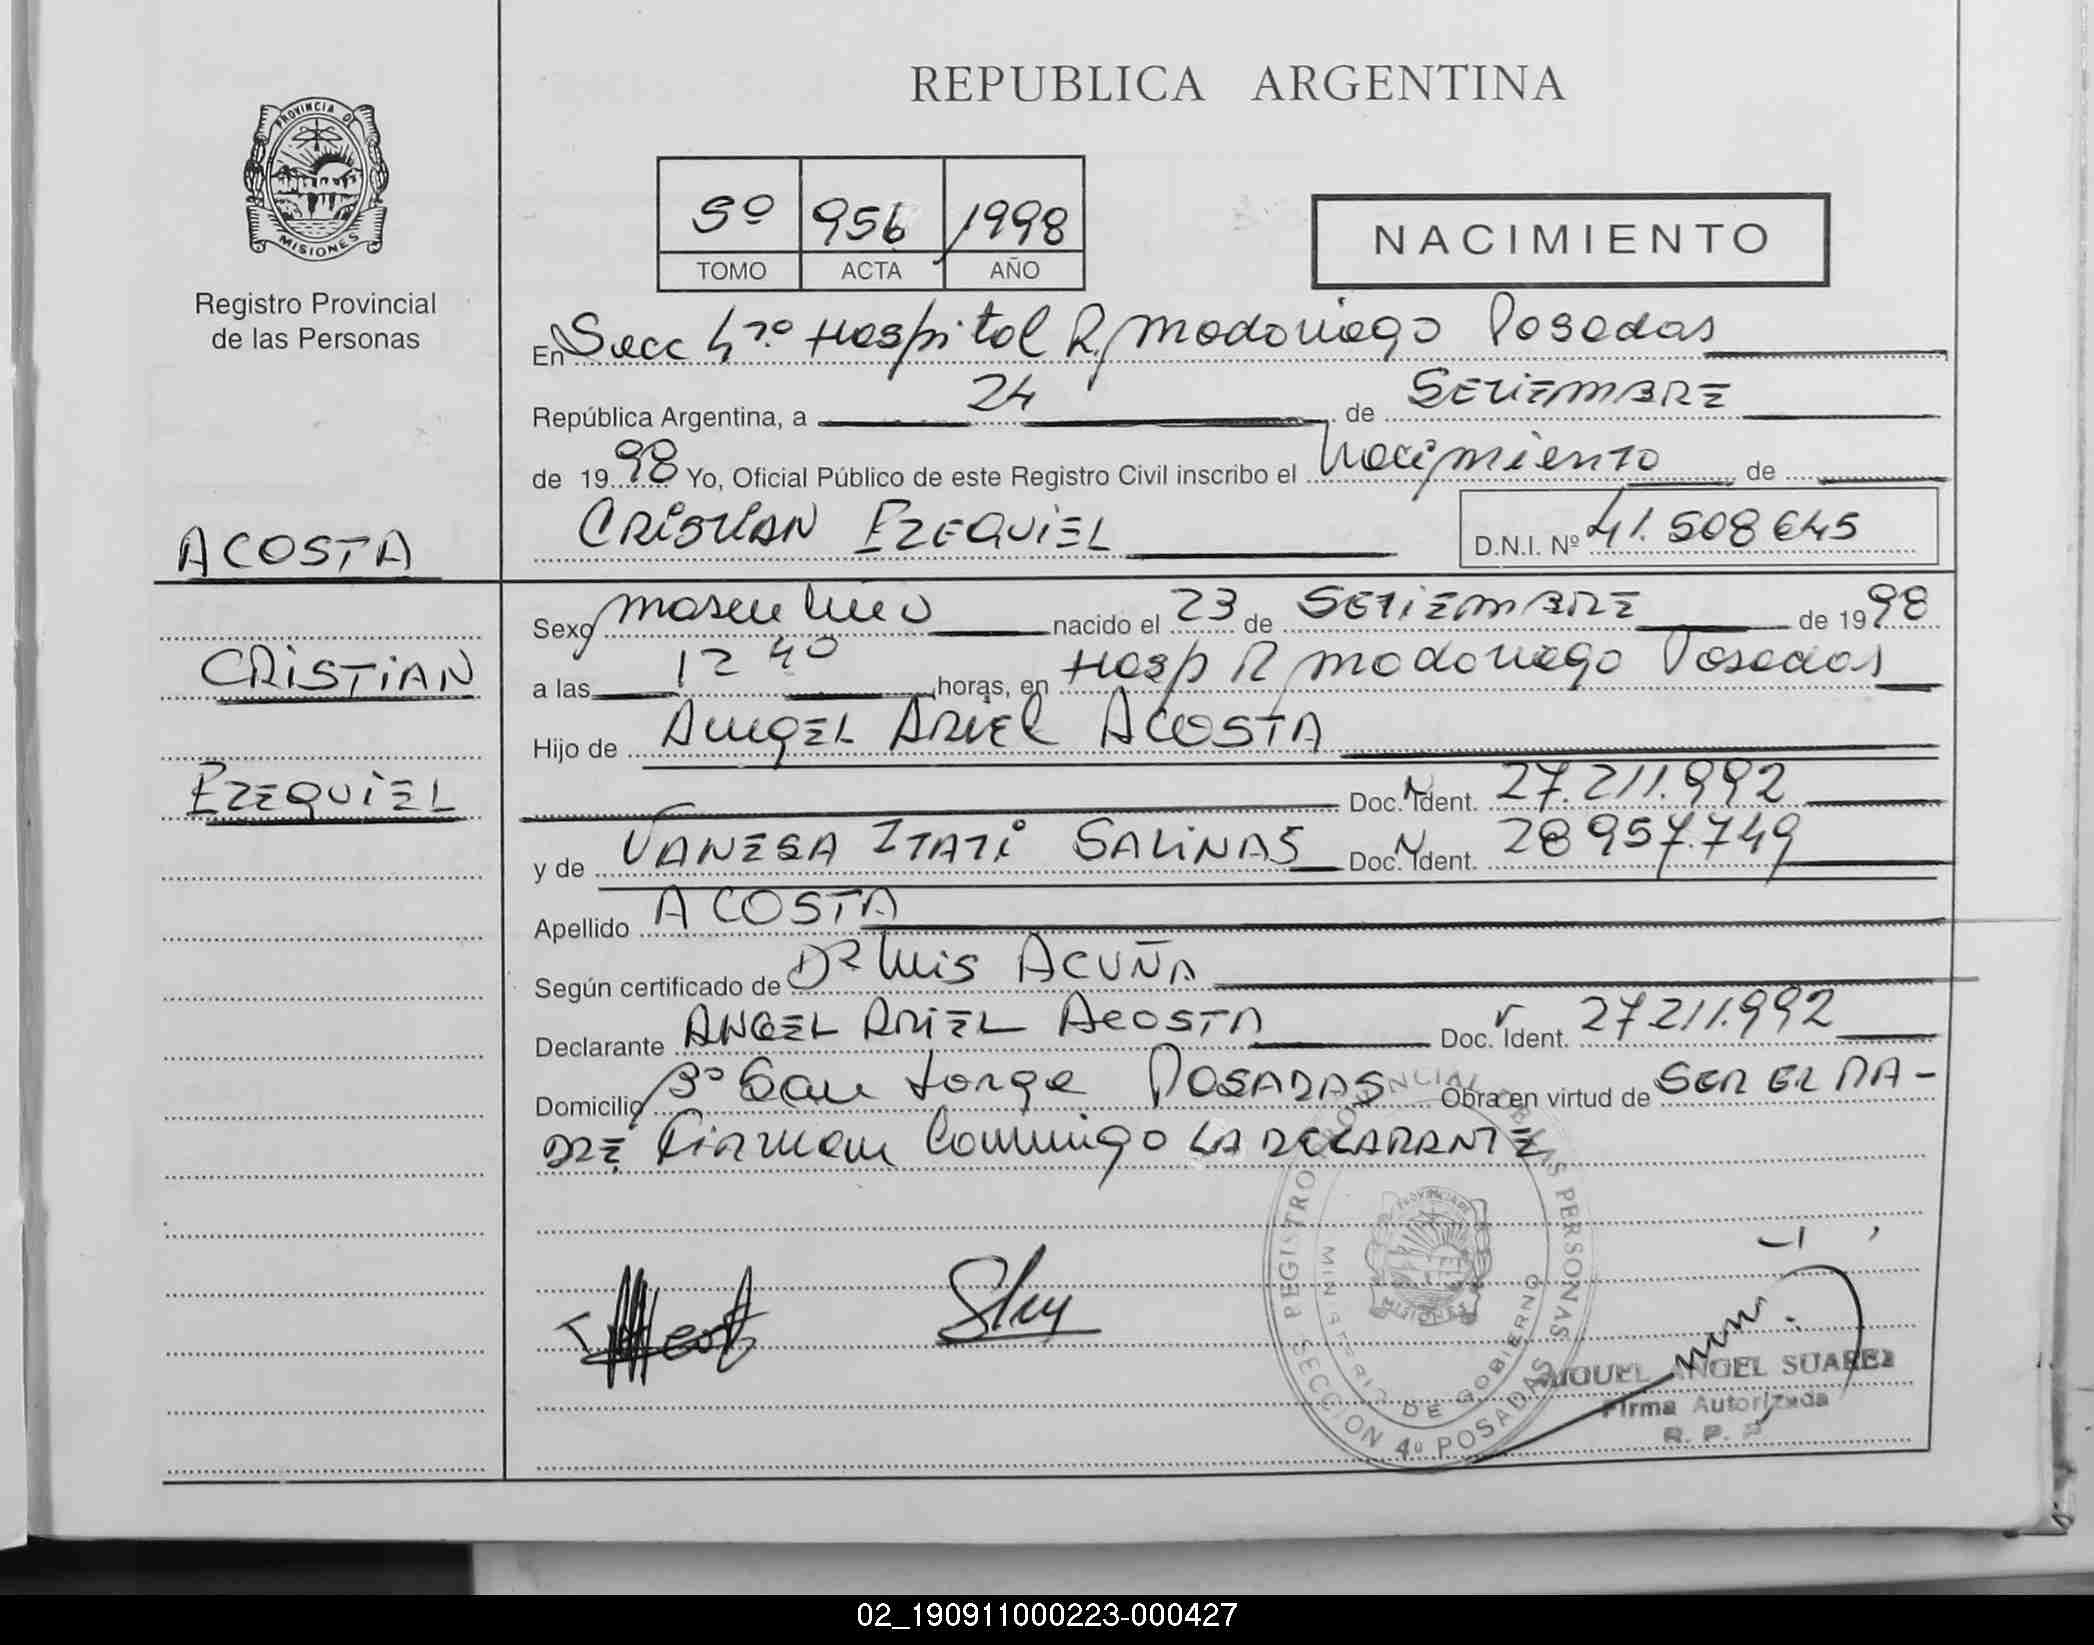 REPUBLICA ARGENTINA
PROVINCIA DE
MISIONES
Registro Provincial
de las Personas
5º 956 1998
TOMO ACTA AÑO
NACIMIENTO
En Secc 4ta Hospital R, Madariaga Posadas
República Argentina, a 24 de SETIEMBRE
de 1998 Yo, Oficial Público de este Registro Civil inscribo el Nacimiento de
CRISTIAN EZEQUIEL D.N.I. Nº 41.508645
ACOSTA
CRISTIAN
EZEQUIEL
Sexo masculino nacido el 23 de SETIEMBRE de 1998
a las 12 40 horas, en Hosp R Madariaga Posadas
Hijo de ANGEL ARIEL ACOSTA
Doc. Ident. 27.211.992
y de VANESA ITATI SALINAS Doc. Ident. 28957.749
Apellido ACOSTA
Según certificado de Dr Luis ACUÑA
Declarante ANGEL ARIEL ACOSTA Doc. Ident. 27211.992
Domicilio Bº San Jorge POSADAS Obra en virtud de SER EL PA-
DRE Firman Conmigo LA DECLARANTE
REGISTRO PROVINCIAL DE LAS PERSONAS
MINISTERIO DE GOBIERNO
SECCION 4º POSADAS
PROVINCIA DE
MISIONES
MIGUEL ANGEL SUAREZ
Firma Autorizada
R. P. P.
02_190911000223-000427